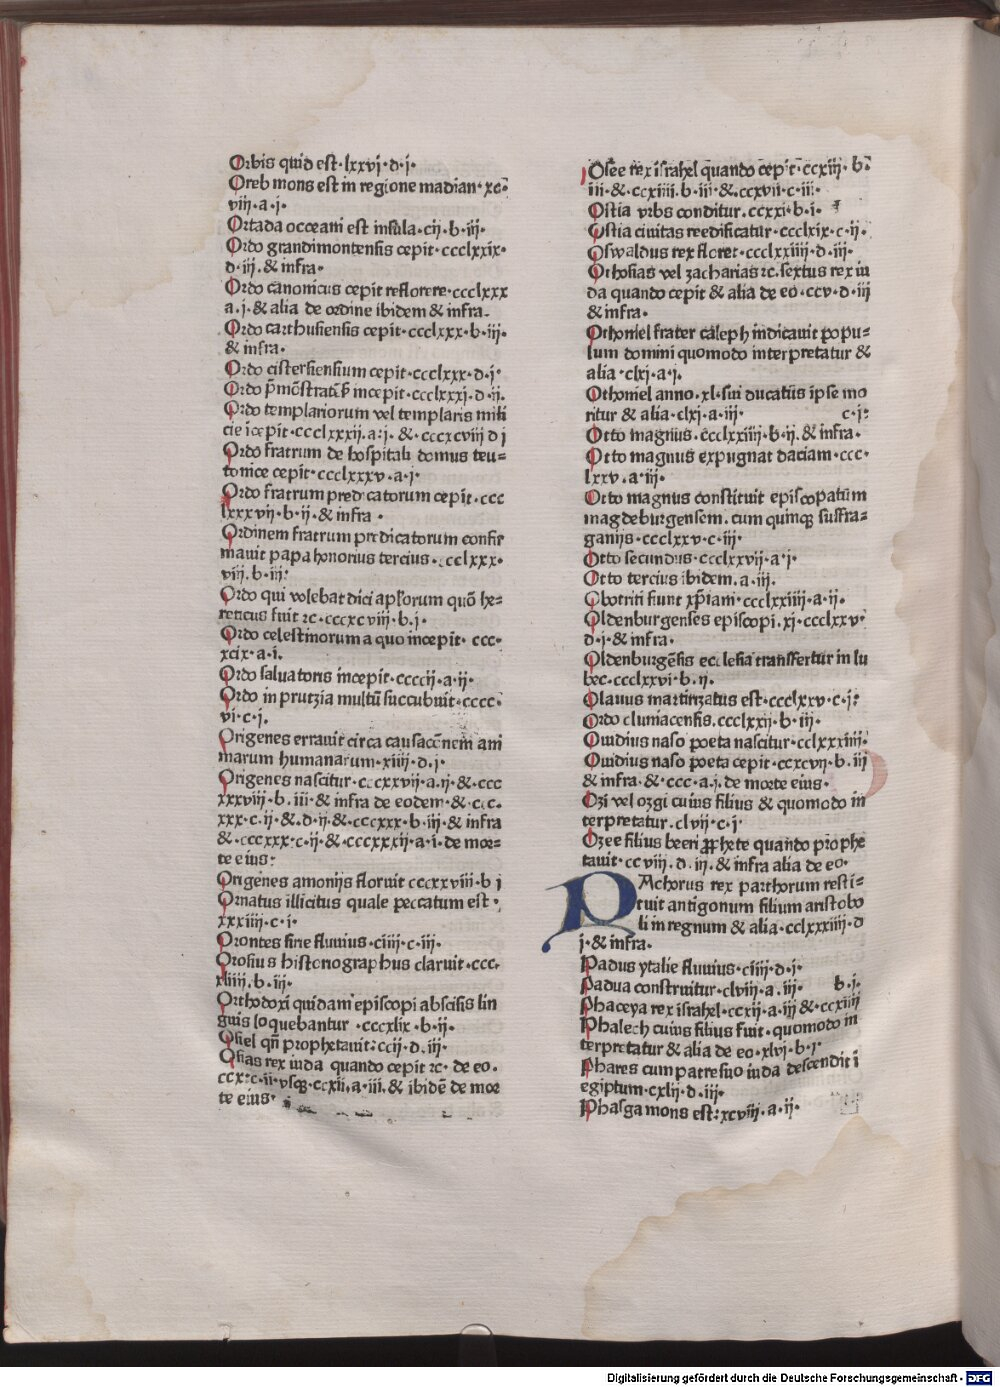 Orbis quid est·lxxvi·d·i·
Oreb mons est in regione madian·xc·
viii·a·i·
Ortada occeani est insula·cij·b·iij·
Ordo grandimontensis cepit·ccclxxix·
d·iii·& infra·
Ordo canonicus cepit reflorere·ccclxxx
a·i·& alia de ordine ibidem & infra·
Ordo carthusiensis cepit·ccclxxx·b·iij·
& infra·
Ordo cistersiensium cepit·ccclxxx·d·i·
Ordo p̄mōstratēs̄ incepit·ccclxxxi·d·ij·
Ordo templariorum vel templaris mili
cie īcepit·ccclxxxij·a·i·&·cccxcviij d i
Ordo fratrum de hospitali domus teu=
tonice cepit·ccclxxxv·a·i·
Ordo fratrum predicatorum cepit·ccc
lxxxvij·b·ij·& infra·
Ordinem fratrum predicatorum confir
mauit papa honorius tercius·ccclxxx·
viij·b·iij·
Ordo qui volebat dici apl'orum quō he=
reticus fuit ⁊c·cccxcviij·b·i·
Ordo celestinorum a quo incepit·ccc·
xcix·a·i·
Ordo saluatoris incepit·ccccij·a·ij·
Ordo in prutzia multū succubuit·cccc·
vi·c·i·
Origenes errauit circa causacōnem ani
marum humanarum·xiiij·d·i·
Origenes nascitur·cccxxvij·a·ij·&·ccc
xxxviij·b·iii·& infra de eodem·&·ccc·
xxx·c·ij·&·d·ij·&·cccxxx·b·iij·& infra
&·cccxxx·c·ij·&·cccxxxij·a·i·de mor=
te eius·
Origenes amonijs floruit cccxxviij·b i
Ornatus illicitus quale peccatum est·
xxxiiij·c·i·
Orontes siue fluuius·ciiij·c·iij·
Orosius historiographus claruit·ccc·
xliiij·b·iij·
Orthodoxi quidam episcopi abscisis lin
guis loquebantur·cccxlix·b·ij·
Osiel qn̄ prophetauit·ccij·d·iij·
Osias rex iuda quando cepit ⁊c·de eo·
ccx·c·ij·vsq̄·ccxij·a·iij·& ibidē de mor
te eius·
Osee rex israhel quando cepit·ccxiij·b·
iii·&·ccxiiij·b·iij·&·ccxvij·c·iij·
Ostia vrbs conditur·ccxxi·b·i·
Ostia ciuitas reedificatur·ccclxix·c·ij·
Oswaldus rex floret·ccclxxiiij·d·iij·
Othosias vel zacharias ⁊c·sextus rex iu
da quando cepit & alia de eo·ccv·d·iij
& infra·
Othoniel frater caleph iudicauit popu=
lum domini quomodo interpretatur &
alia·clxi·a·i·
Othoniel anno·xl·sui ducatus ipse mo
ritur & alia·clxi·a·iij· c·i·
Otto magnus·ccclxxiiij·b·ij·& infra·
Otto magnus expugnat daciam·ccc·
lxxv·a·iij·
Otto magnus constituit episcopatum
magdeburgensem·cum quinq̄ suffra=
ganijs·ccclxxv·c·iij·
Otto secundus·ccclxxvij·a·i·
Otto tercius ibidem·a·iij·
Obotriti fiunt xp̄iani·ccclxxiiij·a·ij·
Oldenburgenses episcopi·xi·ccclxxv·
d·i·& infra·
Oldenburgēsis ecclesia transfertur in lu
bec·ccclxxvi·b·ij·
Olauus martirizatus est·ccclxxv·c·i·
Ordo cluniacensis·ccclxxij·b·iij·
Ouidius naso poeta nascitur·cclxxxiiij·
Ouidius naso poeta cepit·ccxcvij·b·iij
& infra·&·ccc·a·i·de morte eius·
Ozi vel ozgi cuius filius & quomodo in
terpretatur·clvij·c·i·
Ozee filius beeri p̄phete quando prophe
tauit·ccviij·d·iij·& infra alia de eo·
PAchorus rex parthorum resti=
tuit antigonum filium aristobo
li in regnum & alia·cclxxxiiij·d
i·& infra·
Padus ytalie fluuius·ciiij·d·i·
Padua construitur·clviij·a·iij· b·i·
Phaceya rex israhel·ccxij·a·iij & ccxiiij
Phalech cuius filius fuit·quomodo in
terpretatur & alia de eo·xlvi·b·i·
Phares cum patre suo iuda descendit ī
egiptum·cxlij·d·iij·
Phasga mons est·xcviij·a·ij·
Digitalisierung gefördert durch die Deutsche Forschungsgemeinschaft - DFG